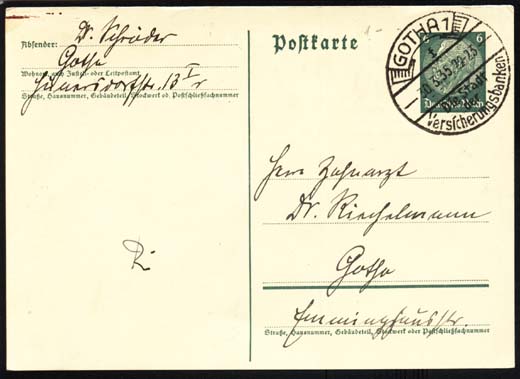 Absender: D. Schröder
Gotha
Wohnort, auch Zustell- oder Leitpostamt
13 I r
Straße, Hausnummer, Gebäudeteil, Stockwerk od. Postschließfachnummer
Postkarte
6
GOTHA 1
22-23
die Stadt
der
Versicherungsbanken
Herrn Zahnarzt
Dr. Riechelmann
Gotha
Emminghausstr.
Straße, Hausnummer, Gebäudeteil, Stockwerk oder Postschließfachnummer